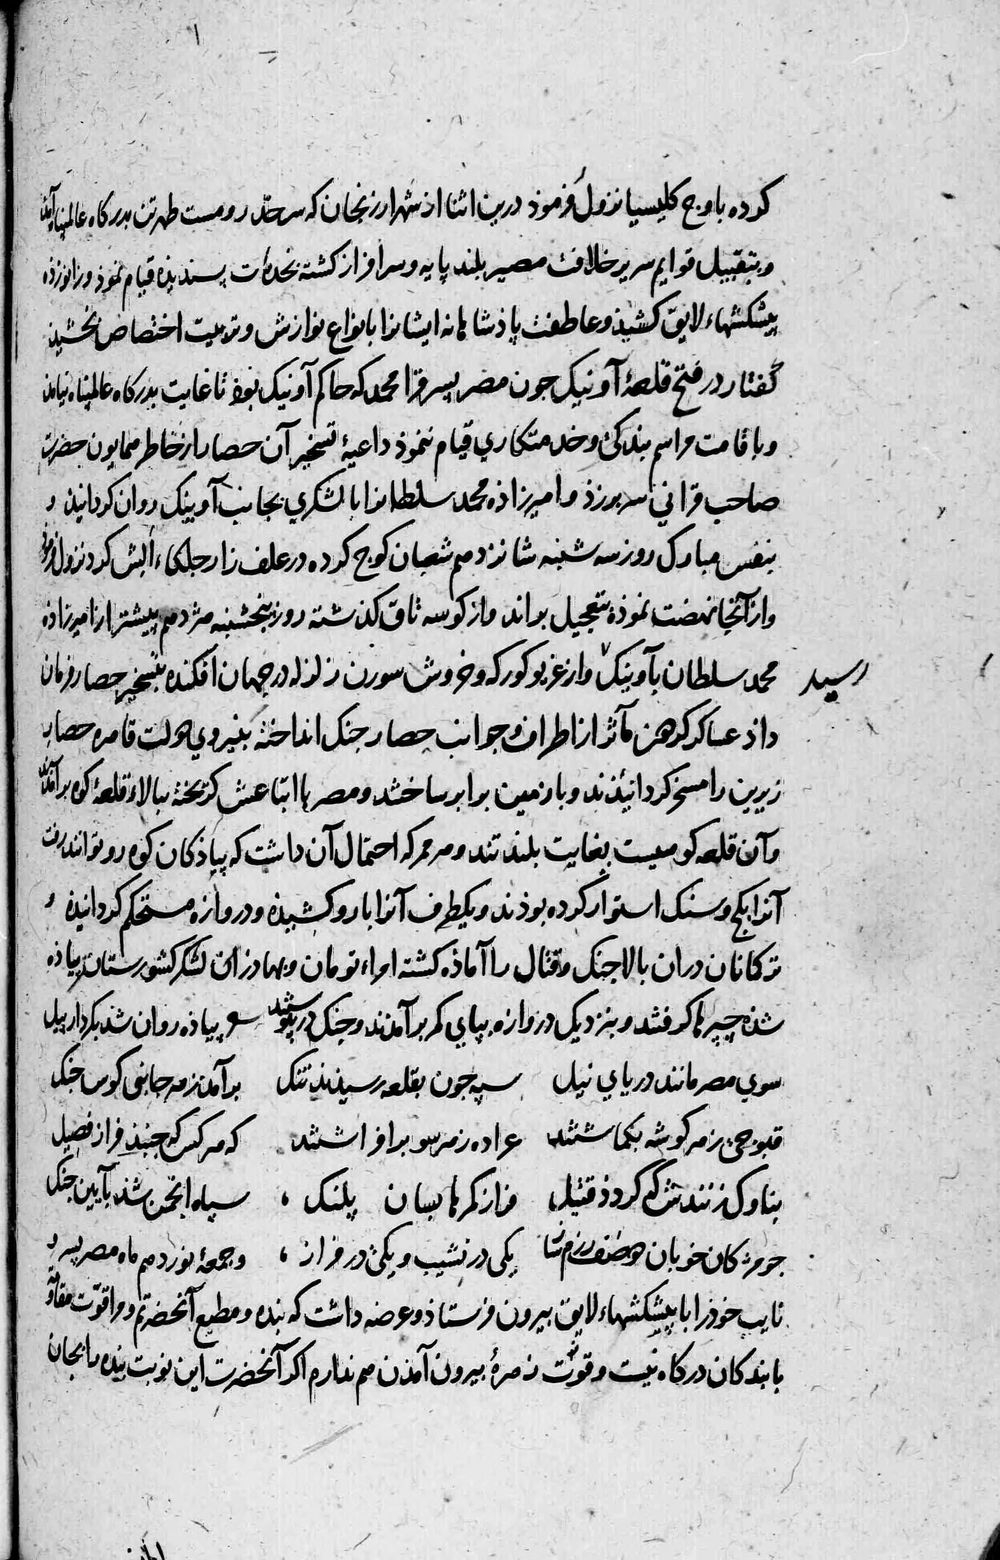 کرده باوج کلیسیا نزول فرموذ درین اثنا از شهر ارزنجان که سرحد رومست طهرتن بدرکاه عالمپناه آمد
وبتقبیل قوایم سریر خلافت مصیر بلند پایه وسرافراز کشته بخدمات پسندیده قیام نموذ وزانو زذه
پیشکشهاء لایق کشیذ وعاطفت پاذشاهانه ایشانرا بانواع نوازش وتربیت اختصاص بخشید
گفتار در فتح قلعهٔ آونیک جون مصر پسر قرا محمد که حاکم آونیک بوذ تا غایت بدرکاه عالمپناه نیامد
وباقامت مراسم بندکی وخدمتکاری قیام ننموذ داعیهٔ تسخیر آن حصار از خاطر همایون حضرت
صاحب قرانی سر برزذ وامیرزاذه محمد سلطانرا با لشکری بجانب آونیک روان کردانیذ و
بنفس مبارک روز سه شنبه شانزدهم شعبان کوج کرده در علف زار جلکاء الش کرد نزول فرموذ
واز آنجا نهضت نموذه بتعجیل براند واز کوسه تاق کذشته روز پنجشنبه هژدهم پیشتر از امیرزاذه
محمد سلطان بآونیک واز غریو کورکه وخروش سورن زلزله در جهان افکنده بتسخیر حصار فرمان
رسید
داذ عساکر کردون مآثر از اطراف وجوانب حصار جنک انداخته بنیروی دولت قاهره حصار
زیرین را مسخر کردانیذند وبا زمین برابر ساختند ومصر با اتباعش کریخته ببالاء قلعهٔ کوه برآمدند
وآن قلعه کوهیست بغایت بلند تند وهر ممر که احتمال آن داشت که پیاذکان کوه رو تواند رفت
آنرا بکج وسنک استوار کرده بوذند ویکطرف آنرا بارو کشیذه ودروازه مستحکم کردانیذه و
ترکانان دران بالا جنک وقتال را آماذه کشته امراء تومان وبهادران لشکر کشورستان پیاذه
شذه چپرها کرفتند وبنزدیک دروازه بپای کمر برآمدند وجنک در پیوستند پیاذه روان شد بکردار پیل
سوی مصر مانند دریای نیل سپه جون بقلعه رسیذند تنک برآمد زهر جانبی کوس جنک
قبوجی بهر کوشه بکماشتند عراده زهر سو برافراشتند که هر کس که جنبذ فراز فصیل
بناوک زنندش کی کردذ قتیل فراز کمرها بسان پلنک سپاه انجمن شذ بآیین جنک
جو مژکان خوبان دو صف رزم ساز یکی در نشیب ویکی در فراز وجمعهٔ نوزدهم ماه مصر پسر و
نایب خوذرا با پیشکشهاء لایق بیرون فرستاذ وعرضه داشت که بنده ومطیع آنحضرتم ومرا قوّت مقاومت
با بندکان درکاه نیست وقوّت زهرهٔ بیرون آمدن هم ندارم اکر آنحضرت این نوبت بنده را بجان